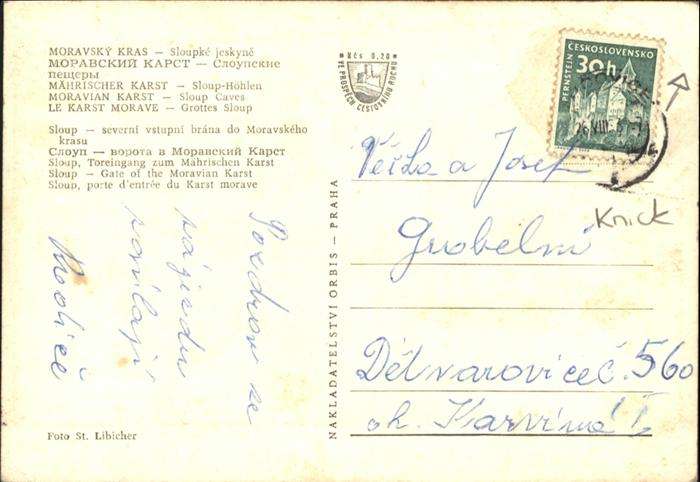 MORAVSKÝ KRAS — Sloupké jeskyně
МОРАВСКИЙ КАРСТ — Слоупские
пещеры
MÄHRISCHER KARST — Sloup-Höhlen
MORAVIAN KARST — Sloup Caves
LE KARST MORAVE — Grottes Sloup
Sloup — severní vstupní brána do Moravského
krasu
Слоуп — ворота в Моравский Карст
Sloup, Toreingang zum Mährischen Karst
Sloup — Gate of the Moravian Karst
Sloup, porte d'entrée du Karst morave
Pozdrav ze
zájezdu
Foto St. Libicher
NAKLADATELSTVÍ ORBIS — PRAHA
Kčs 0,20
VE PROSPĚCH CESTOVNÍHO RUCHU
ČESKOSLOVENSKO
30h
PERNŠTEJN
a Josef
Grobelní
Dětmarovice č. 560
Karviná I
Knick